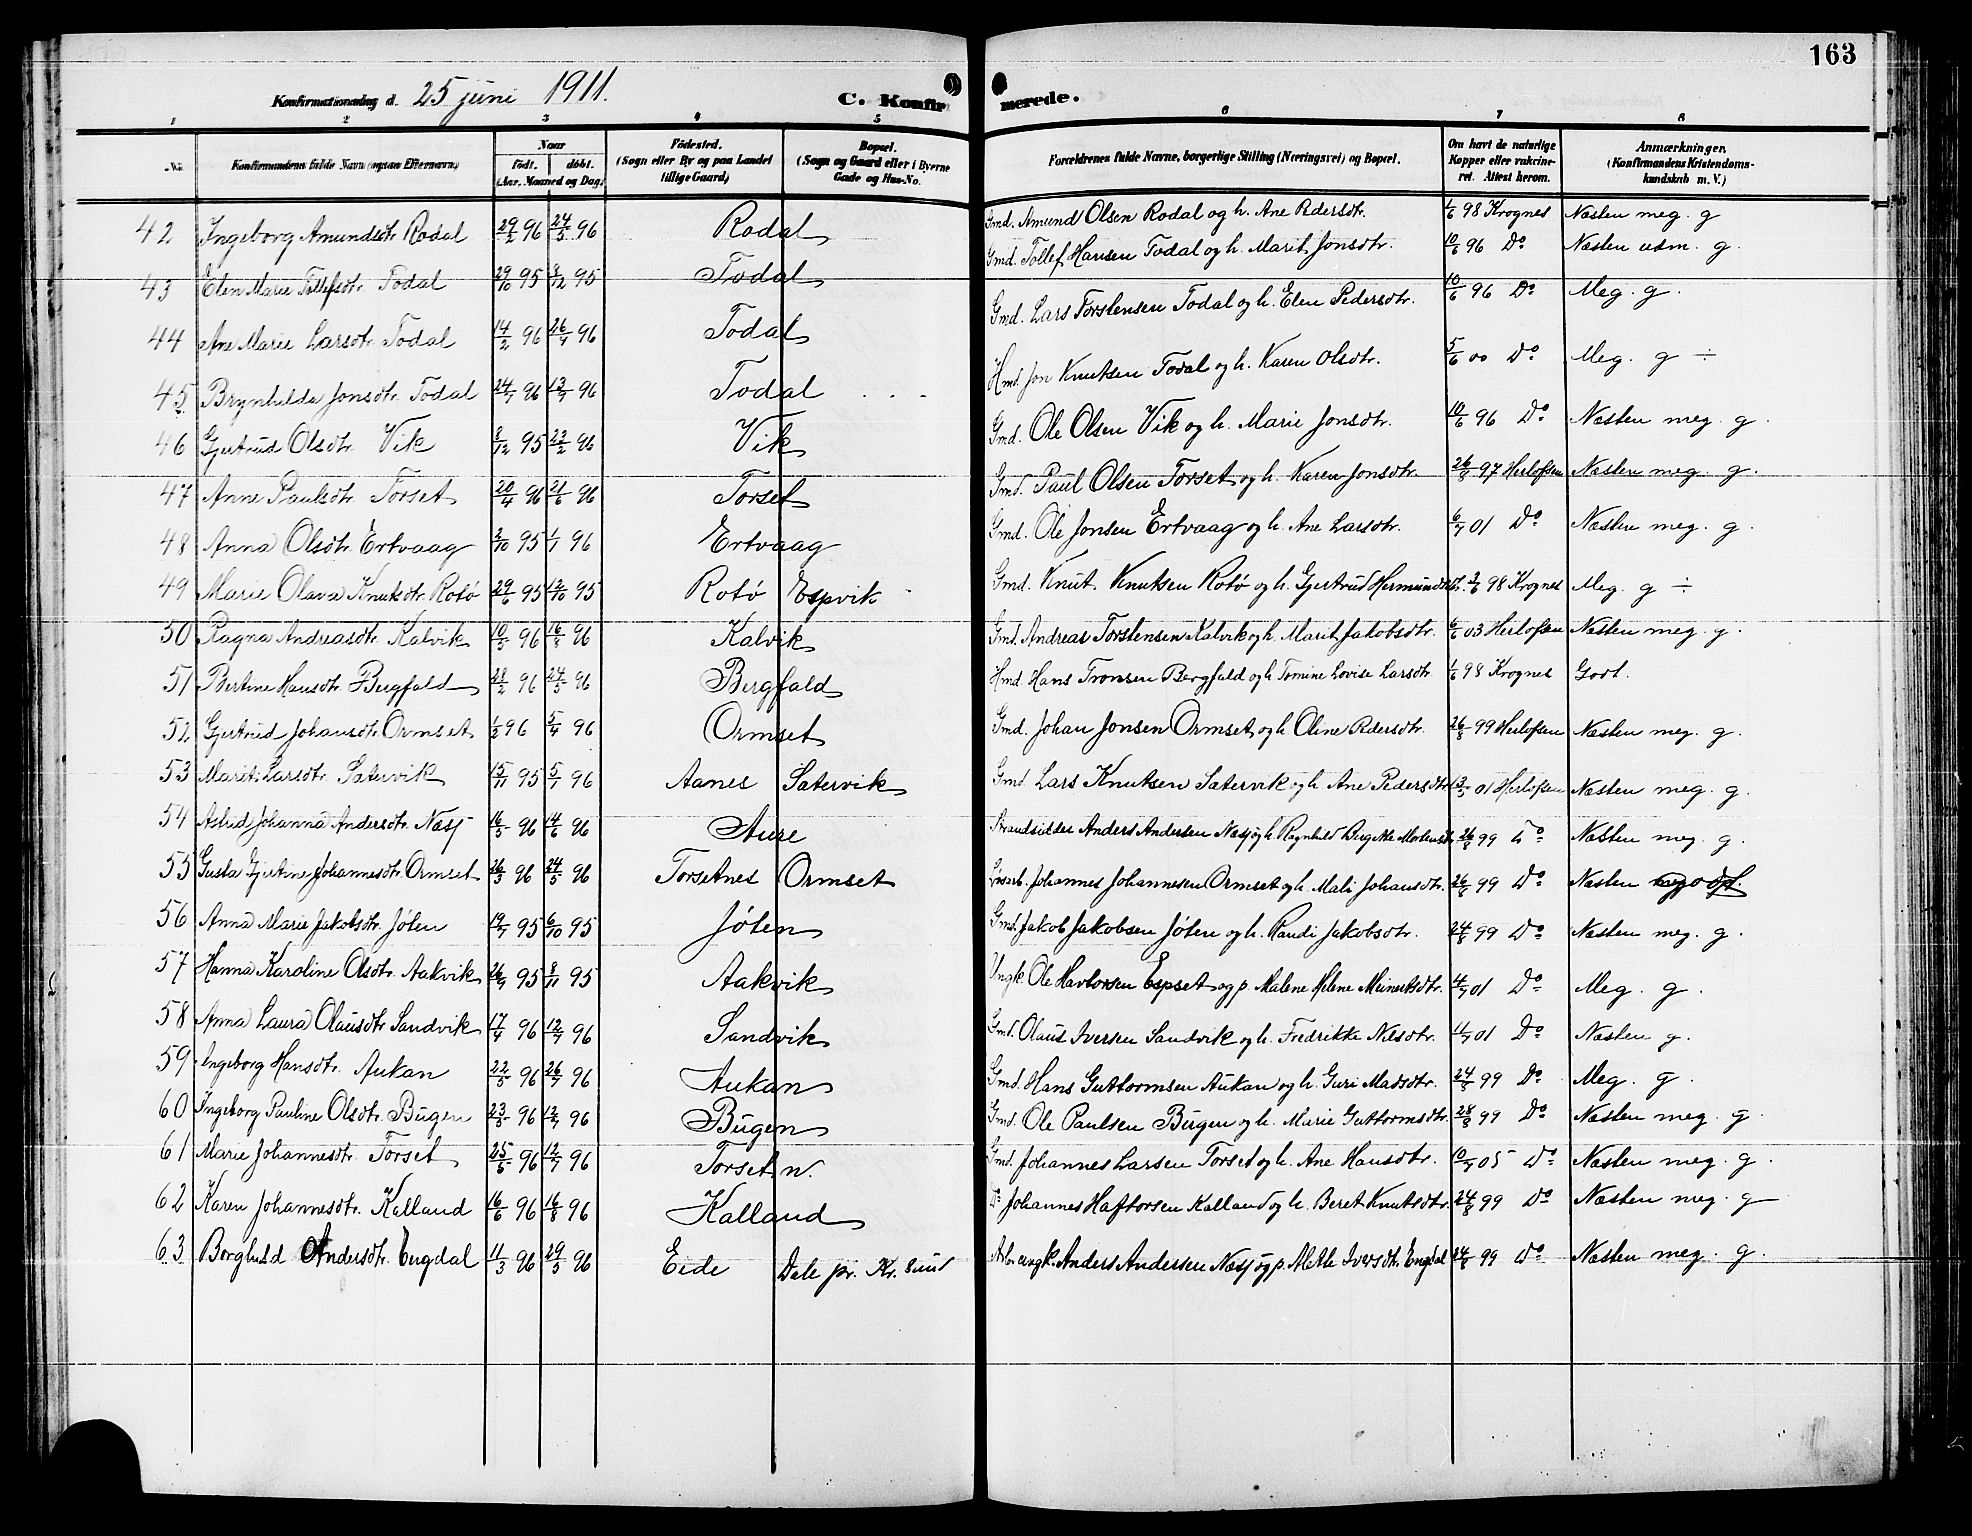 163
Konfirmationsdag d. 25 juni 1911. C. Konfirmerede.
1 2 3 4 5 6 7 8
No. Konfirmandens fulde Navn (ogsaa Efternavn) Naar født. døbt. (Aar, Maaned og Dag) Fødested. (Sogn eller By og paa Landet tillige Gaard) Bopæl. (Sogn og Gaard eller i Byerne Gade og Hus-No. Forældrenes fulde Navne, borgerlige Stilling (Næringsvei) og Bopæl. Om havt de naturlige Kopper eller vakcineret. Attest herom. Anmærkninger. (Konfirmandens Kristendomskundskab m. V.)
42 Ingeborg Amundsdtr. Rodal 29/2 96 24/5 96 Rodal Gmd. Amund Olsen Rodal og h. Ane Pdersdtr. 1/6 98 Krognes Næsten meg. g
43 Elen Marie Tollefsdtr. Todal 29/10 95 8/12 95 Todal Gmd. Tollef Hansen Todal og h. Marit Jonsdtr. 10/6 96 Do Næsten udm. g.
44 Ane Marie Larsdtr. Todal 14/2 96 26/4 96 Todal Gmd. Lars Torstensen Todal og h. Elen Pedersdtr. 10/6 96 Do Meg. g.
45 Brynhilda Jonsdtr. Todal 24/4 96 13/7 96 Todal Hmd. Jon Knutsen Todal og h. Karen Olsdtr. 5/6 00 Do Meg. g ÷
46 Gjertrud Olsdtr. Vik 8/12 95 23/2 96 Vik Gmd. Ole Olsen Vik og h. Marie Jonsdtr. 10/6 96 Do Næsten meg. g.
47 Anne Paulsdtr. Torset 20/4 96 21/6 96 Torset Gmd. Paul Olsen Torset og h. Karen Jonsdtr. 26/8 97 Herlofsen Næsten meg. g.
48 Anna Olsdtr. Ertvaag 3/10 95 1/1 96 Ertvaag Gmd. Ole Jonsen Ertvaag og h. Ane Larsdtr. 6/7 01 Do Næsten meg. g.
49 Marie Olava Knutsdtr. Rotø 29/6 95 12/10 95 Rotø Espvik Gmd. Knut Knutsen Rotø og h. Gjertrud Hermundsdtr. 2/7 98 Krognes Meg. g ÷
50 Ragna Andreasdtr. Kalvik 10/5 96 16/8 96 Kalvik Gmd. Andreas Torstensen Kalvik og h. Marit Jakobsdtr. 6/6 03 Herlofsen Næsten meg. g.
51 Bertine Hansdtr. Bergfald 28/2 96 24/5 96 Bergfald Hmd. Hans Tronsen Bergfald og h. Tomine Lovise Larsdtr 1/6 98 Krognes Godt.
52 Gjertrud Johansdtr. Ormset 1/2 96 5/4 96 Ormset Gmd. Johan Jonsen Ormset og h. Oline Pdersdtr. 26/8 99 Herlofsen Næsten meg. g.
53 Marit Larsdtr. Satervik 15/11 95 5/1 96 Aanes Satervik Gmd. Lars Knutsen Satervik og h. Ane Pedersdtr. 13/5 01 Herlofsen Næsten meg. g.
54 Astrid Johanna Andersdtr. Næsj 16/5 96 14/6 96 Aure Strandsidder Anders Andersen Næsj og h. Ragnhild Bergitte Mortensdtr. 26/8 99 Do Næsten meg. g.
55 Gusta Gjertine Johannesdtr. Ormset 26/3 96 24/5 96 Torsetnes Ormset Johannes Johannesen Ormset og h. Mali Johansdtr. 26/8 99 Do Næsten
56 Anna Marie Jakobsdtr. Jøten 19/7 95 6/10 95 Jøten Gmd. Jakob Jakobsen Jøten og h. Randi Jakobsdtr. 24/8 99 Do Næsten meg. g.
57 Hanna Karoline Olsdtr. Aakvik 26/9 95 8/11 95 Aakvik Ungk. Ole Havtorsen Espset og p. Malene Helene Meinertsdtr. 4/7 01 Do Meg. g.
58 Anna Laura Olausdtr. Sandvik 17/4 96 12/7 96 Sandvik Gmd. Olaus Iversen Sandvik og h. Fredrikke Nilsdtr. 4/7 01 Do Næsten g.
59 Ingeborg Hansdtr. Aukan 22/5 96 26/7 96 Aukan Gmd. Hans Guttormsen Aukan og h. Guri Madsdtr. 24/8 99 Do Meg. g.
60 Ingeborg Pauline Olsdtr. Bugen 23/5 96 12/7 96 Bugen Gmd. Ole Paulsen Bugen og h. Marie Guttormsdtr. 28/8 99 Do Næsten meg. g.
61 Marie Johannesdtr. Torset 25/5 96 12/7 96 Torset n. Gmd. Johannes Larsen Torset og h. Ane Hansdtr. 10/7 05 Do Næsten meg. g.
62 Karen Johannesdtr. Kalland 16/6 96 16/8 96 Kalland Do Johannes Haftorsen Kalland og h. Beret Knutsdtr. 24/8 99 Do Næsten meg. g
63 Borghild Andersdtr. Engdal 11/3 96 29/5 96 Eide Dale pr. Kr. sund Arb. ungk. Anders Andersen Næsj og p. Mette Iversdtr. Engdal 24/8 99 Do Næsten meg. g.